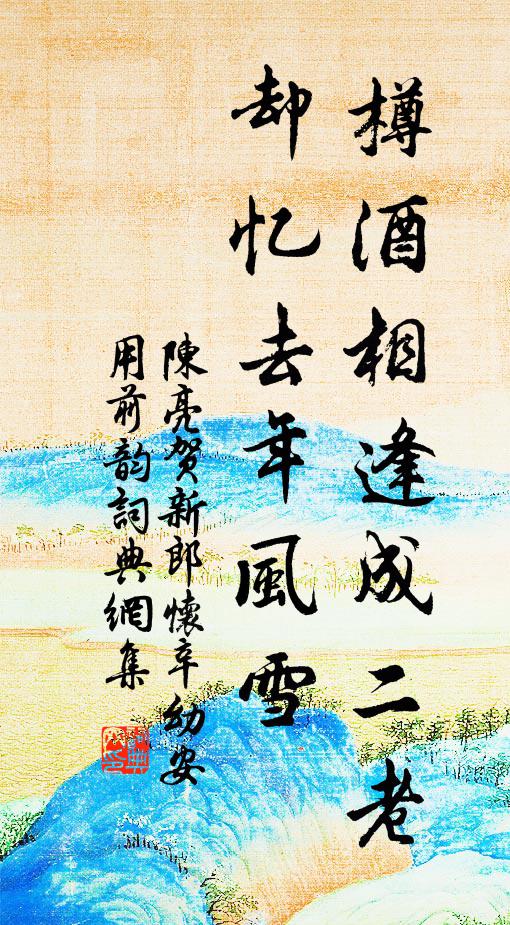 樽酒相逢成二老
却忆去年風雪
陳亮賀新郎懷辛幼安
用前韵詞典網集